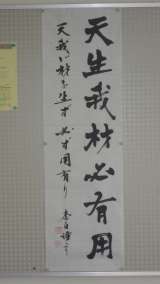 天生我材必有用
天我が材を生ず 必ず用有り 李白詩